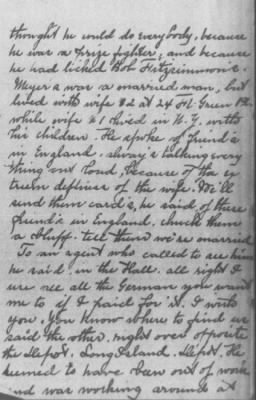 thought he would do everybody, because
he was a prize fighter, and because
he had licked Bob Fitzsimmons.
Meyer's was a married man, but
lived with wife #2 at 24 Ft. Green Pl.
while wife #1 lived in N.Y. with
his children. He spoke of friend's
in England. alway's talking every
thing out loud, because of the ex
treem defness of the wife. We'll
send them card's, he said of these
friend's in England. chuck them
a bluff. tell them we're married
To an agent who called to see him
he said, in the Hall. all right I
use all the Germans you want
me to if I paid for it. I write
you. You know where to find us
said the other. right over opposite
the Depot. Long Island. Depot. He
seemed to have been out of work
and was working around at